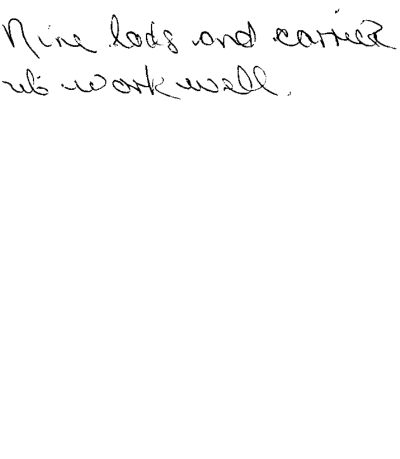 Nine lads and carried
work well.